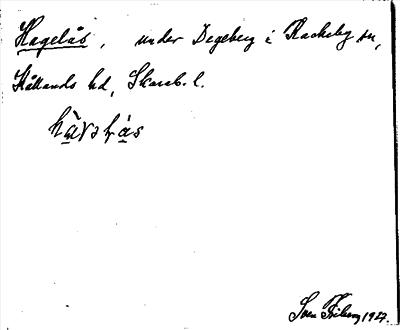 Hagelås, under Degeberg i Rackeby sn,
Kållands hd, Skarab. l.
hàvəḷás
Sven Friberg 1927.